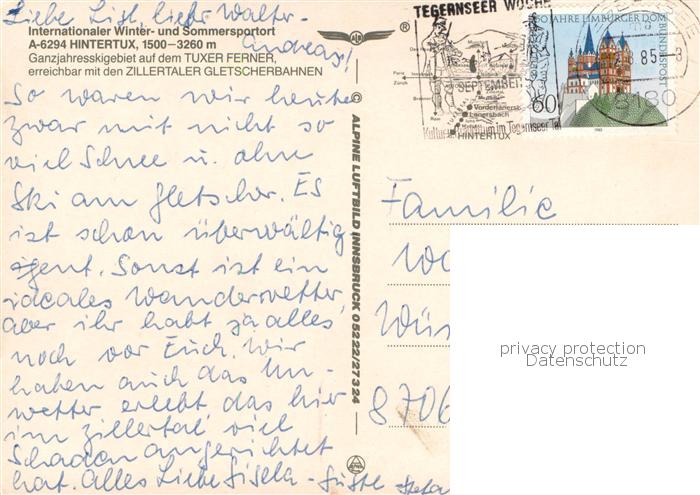 Liebe Lisl, lieber Walter -
Andreas!
Internationaler Winter- und Sommersportort
A-6294 HINTERTUX, 1500–3260 m
Ganzjahresskigebiet auf dem TUXER FERNER,
erreichbar mit den ZILLERTALER GLETSCHERBAHNEN
So waren wir heute
zwar mit nicht so
viel Schnee u. ohne
Ski am Gletscher. ES
ist schon überwältig
gent. Sonst ist ein
ideales Wanderwetter,
aber ihr habt ja alles
noch vor Euch. Wir
haben auch das Un-
wetter erlebt, das hier
im Zillertal viel
Schaden angerichtet
hat. Alles Liebe Gisela -
© ALPINE LUFTBILD INNSBRUCK 05222/27324
®
TEGERNSEER WOCHE
SEPTEMBER
Vorderlanersb.
Lanersbach
HINTERTUX
im Tegernseer Tal
750 JAHRE LIMBURGER DOM
DEUTSCHE BUNDESPOST
60
85-8
8180
Familie
Wü
8706
privacy protection
Datenschutz